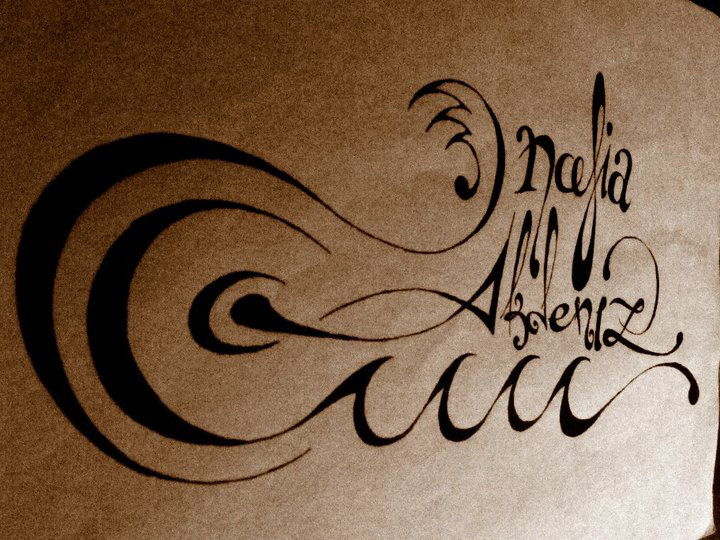 nafia
Akdeniz